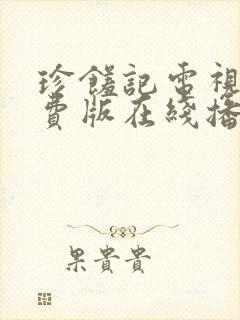 珍饈記電視
費版在綫播
果貴貴